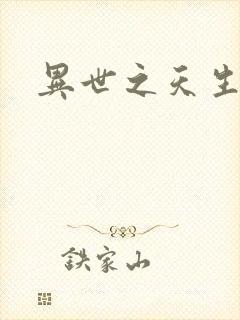 異世之天生
鉄家山